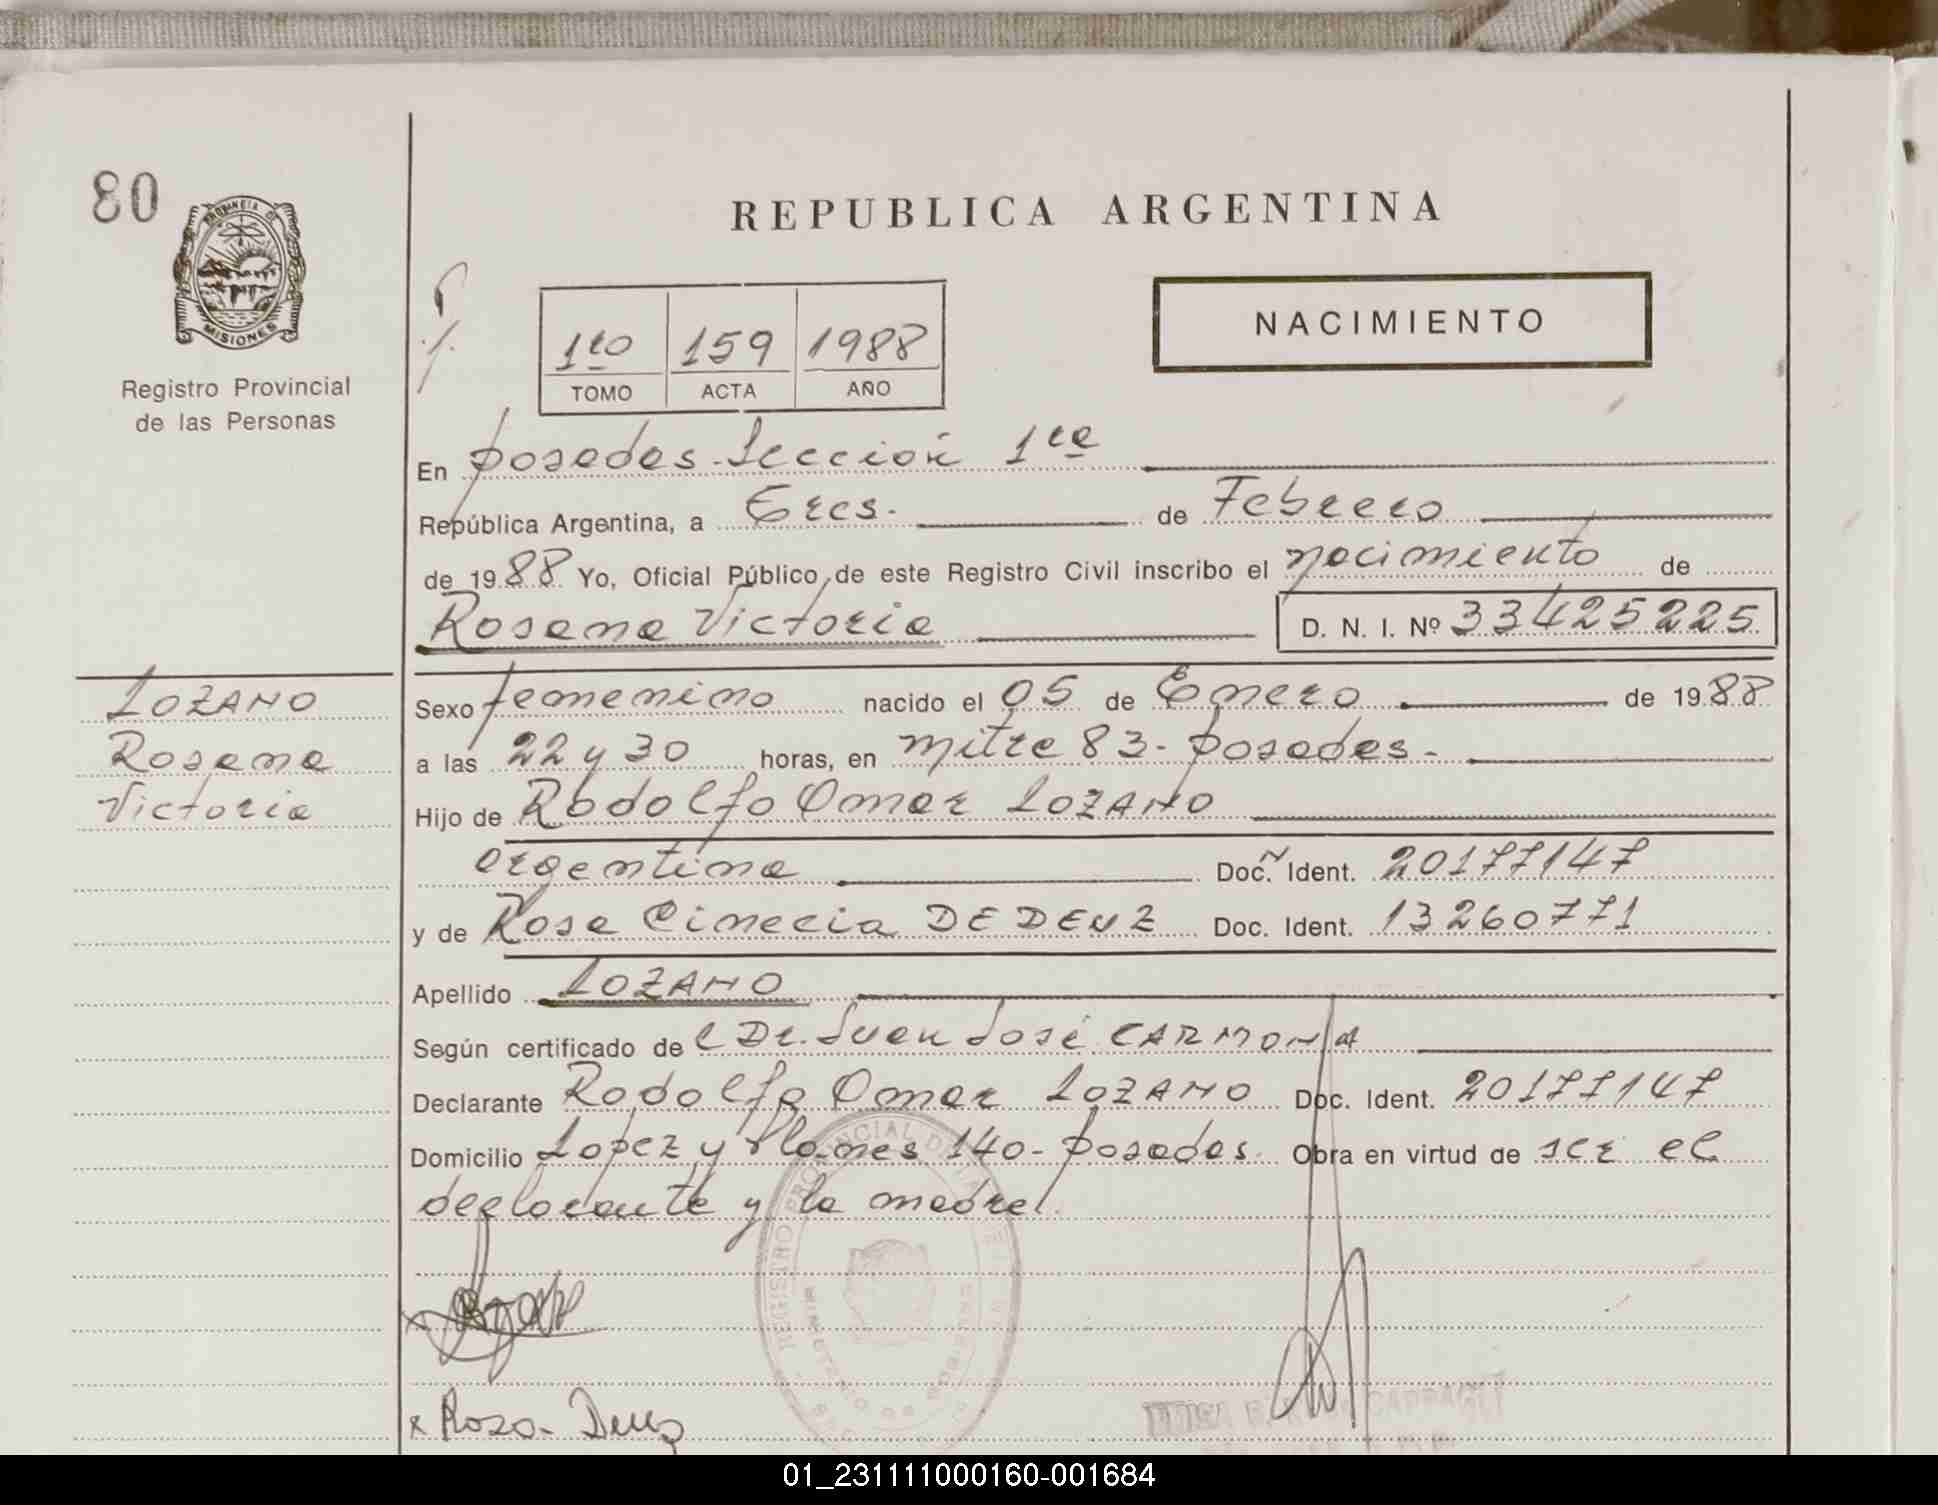 80
PROVINCIA DE
MISIONES
Registro Provincial
de las Personas
REPUBLICA ARGENTINA
1ro 159 1988
TOMO ACTA AÑO
NACIMIENTO
En Posadas-Sección 1ra
República Argentina, a Tres. de Febrero
de 1988 Yo, Oficial Público de este Registro Civil inscribo el nacimiento de
Rosana Victoria D. N. I. Nº 33425225
LOZANO
Rosana
Victoria
Sexo femenino nacido el 05 de Enero de 1988
a las 22 y 30 horas, en Mitre 83-Posadas-
Hijo de Rodolfo Omar LOZANO
argentino Doc. Ident. 20177147
y de Rosa DE DENZ Doc. Ident. 13260771
Apellido LOZANO
Según certificado del Dr. Juan José CARMONA
Declarante Rodolfo Omar LOZANO Doc. Ident. 20177147
Domicilio Lopez y Planes 140-Posadas. Obra en virtud de ser el
declarante y la madre.
x Rosa- Denz
01_231111000160-001684